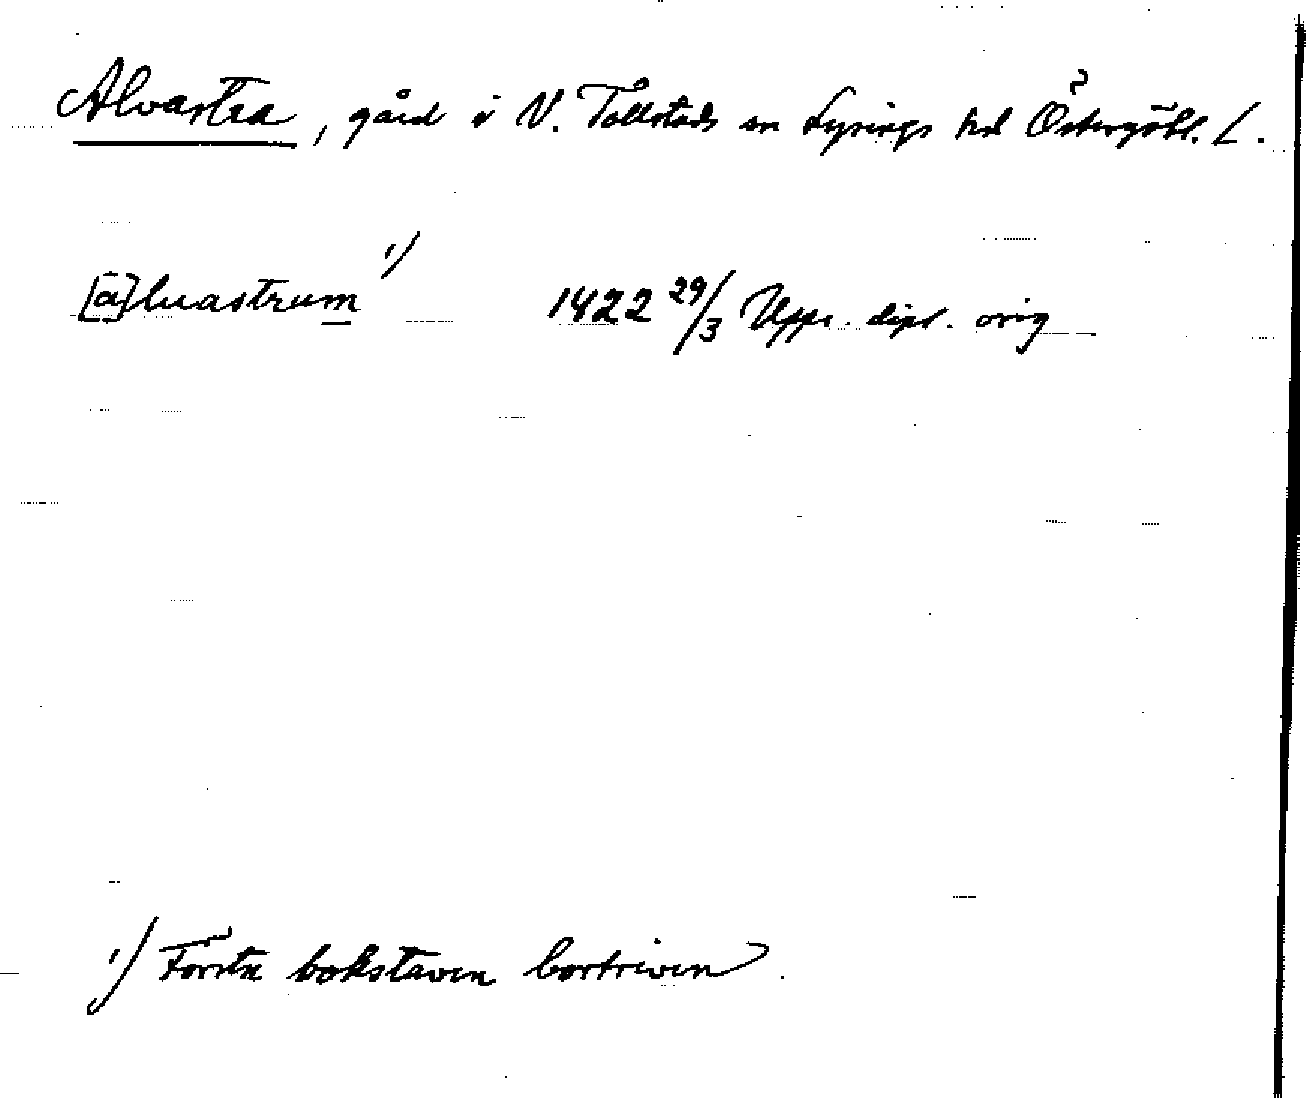 Alvastra, gård i V. Tollstads sn Lysings hd Östergötl. L.
[a]luastrum 1) 1422 29/3 Upps. dipl. orig
1) Första bokstaven bortriven.